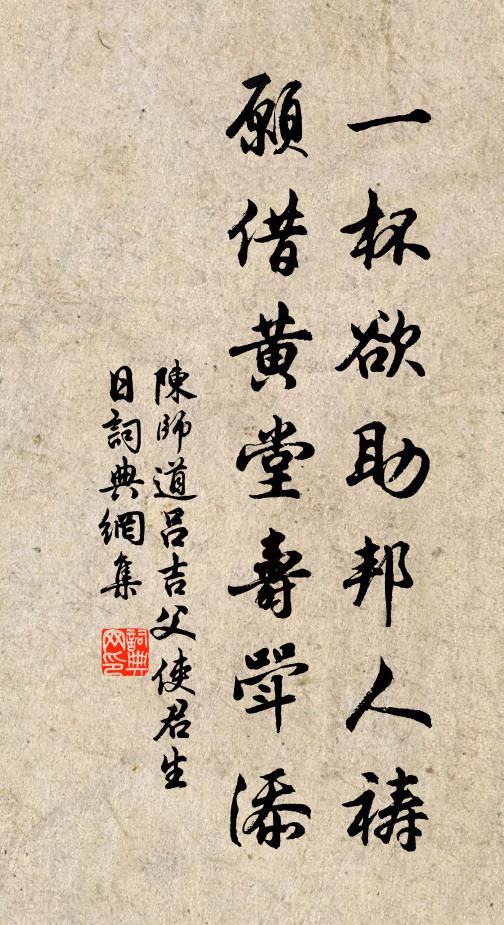 一杯欲助邦人禱
願借黄堂壽斝添
陳師道吕吉父使君生
日詞典網集
詞典网印